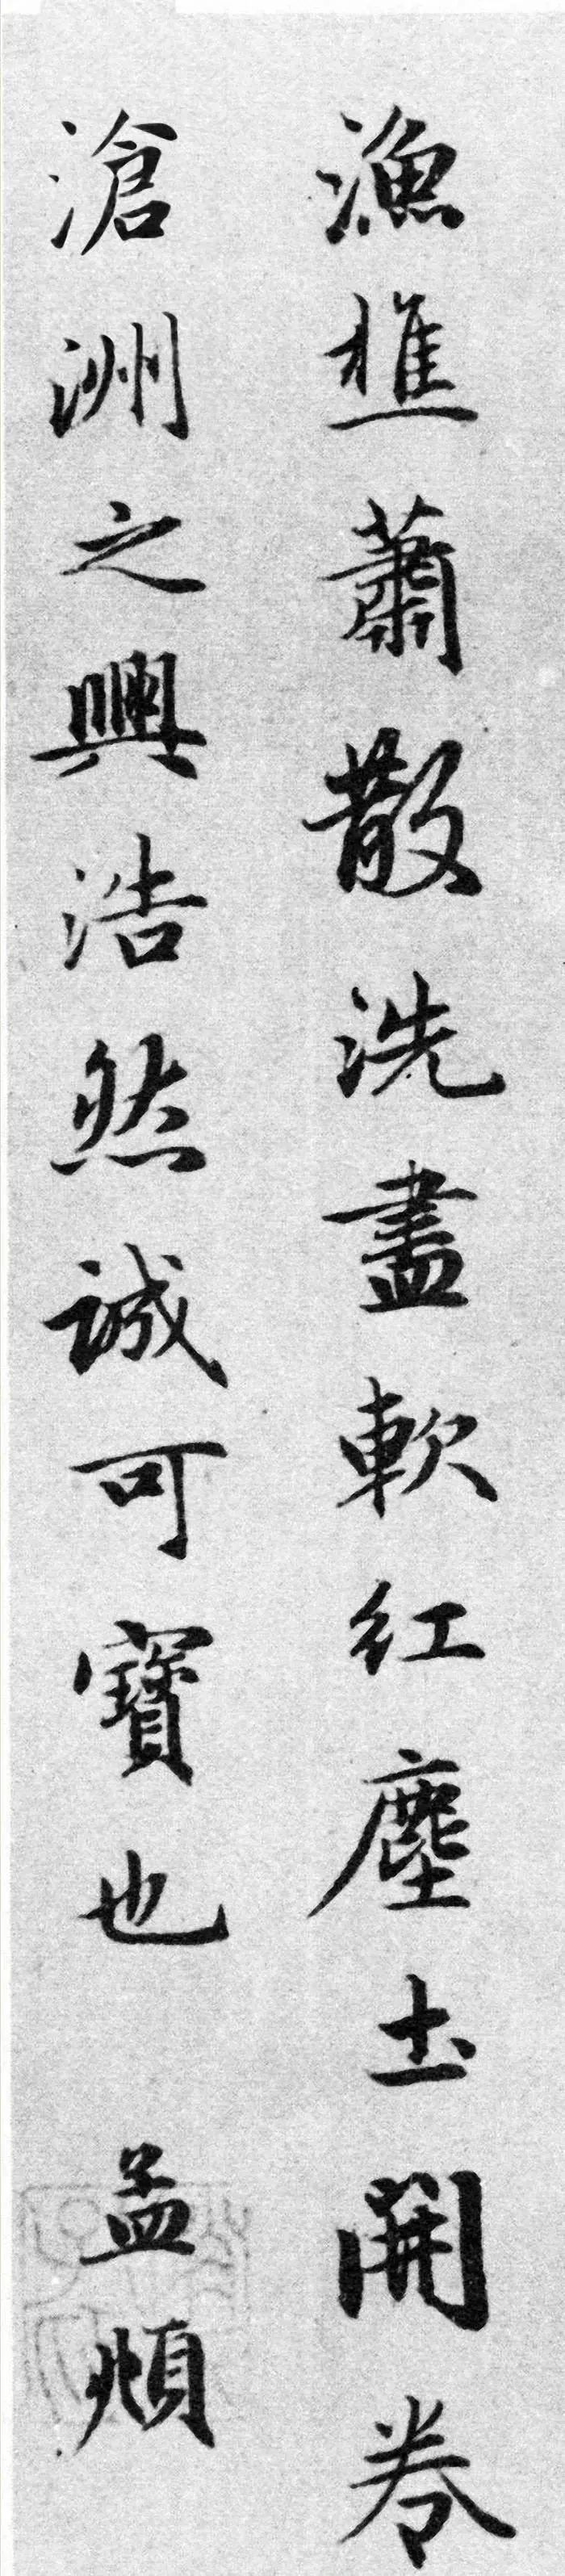 漁樵蕭散洗盡軟紅塵土開卷
滄洲之興浩然誠可寶也 孟頫